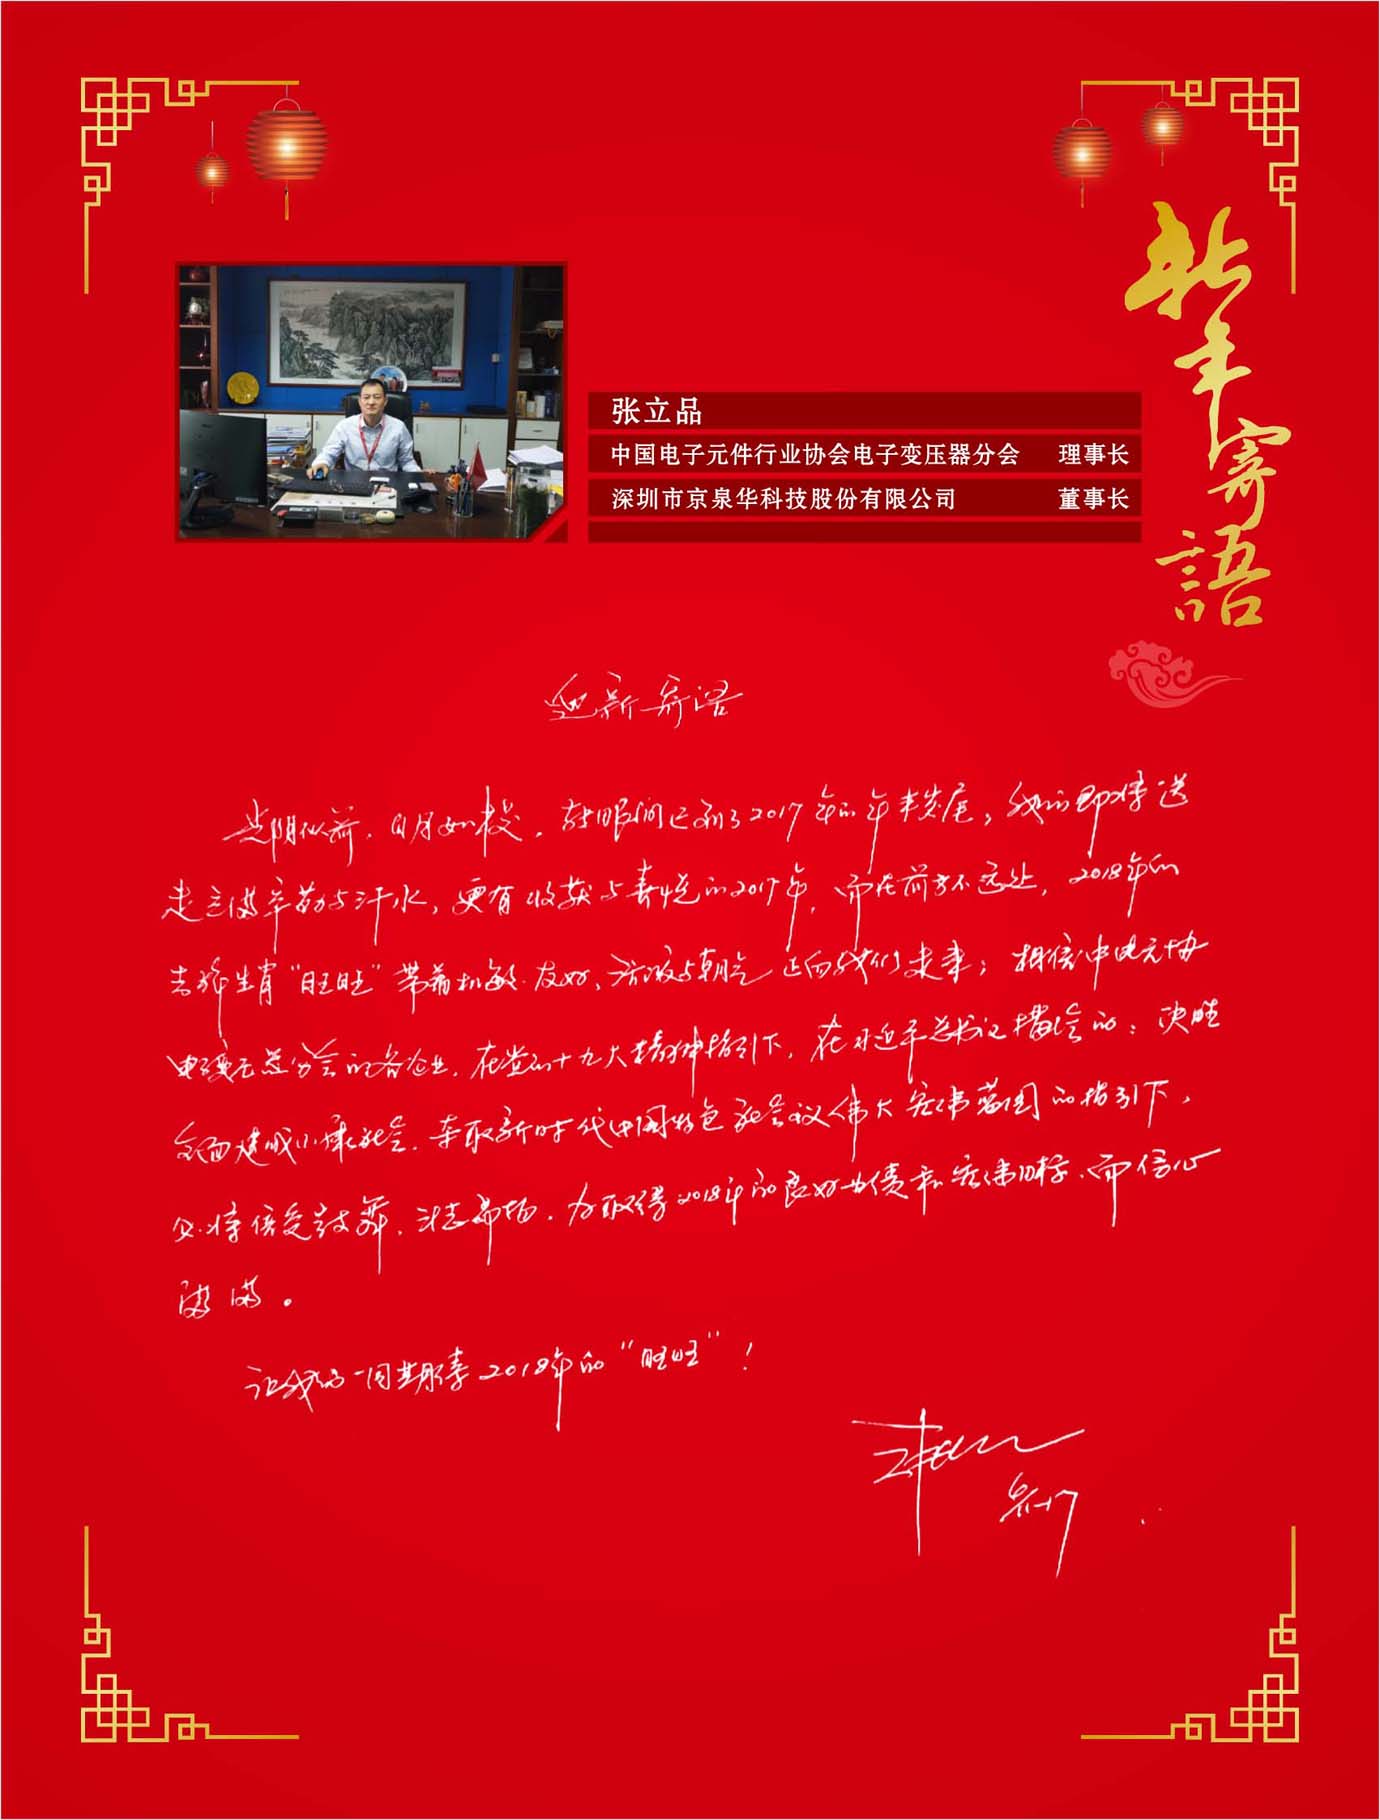 新年寄語
张立品
中国电子元件行业协会电子变压器分会 理事长
深圳市京泉华科技股份有限公司 董事长
迎新寄语
光阴似箭，日月如梭，转眼间已到了2017年的年末岁尾，我们即将送
走充满辛勤与汗水，更有收获与喜悦的2017年，而在前方不远处，2018年的
吉祥生肖“旺旺”带着机敏、友好、活波与朝气正向我们走来；相信中电元协
电子变压器分会的各企业，在党的十九大精神指引下，在习近平总书记描绘的：决胜
全面建成小康社会，夺取新时代中国特色社会主义伟大宏伟蓝图的指引下，
必将倍受鼓舞，斗志昂扬，为取得2018年的良好业绩和宏伟目标，而信心
满满。
让我们一同期待2018年的“旺旺”！